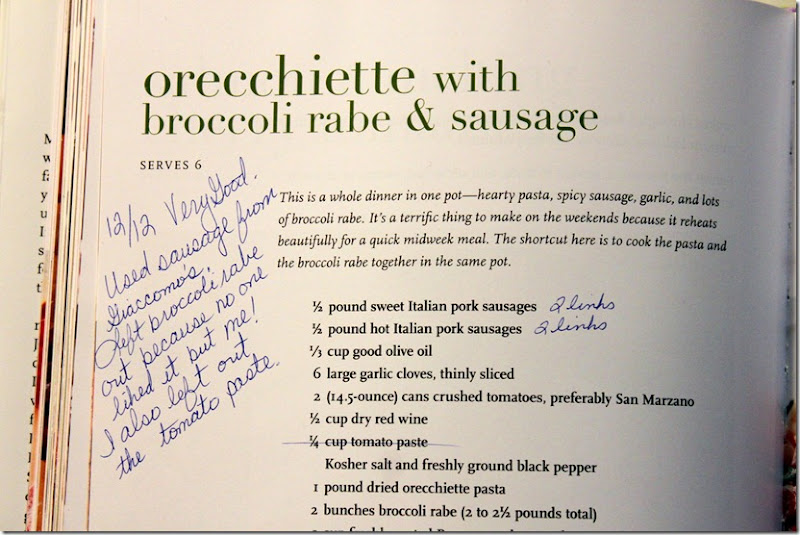 orecchiette with
broccoli rabe & sausage
SERVES 6
12/12 Very Good.
Used sausage from
Giaccomo's.
Left broccoli rabe
out because no one
liked it but me!
I also left out
the tomato paste.
This is a whole dinner in one pot—hearty pasta, spicy sausage, garlic, and lots
of broccoli rabe. It's a terrific thing to make on the weekends because it reheats
beautifully for a quick midweek meal. The shortcut here is to cook the pasta and
the broccoli rabe together in the same pot.
½ pound sweet Italian pork sausages 2 links
½ pound hot Italian pork sausages 2 links
⅓ cup good olive oil
6 large garlic cloves, thinly sliced
2 (14.5-ounce) cans crushed tomatoes, preferably San Marzano
½ cup dry red wine
¼ cup tomato paste
Kosher salt and freshly ground black pepper
1 pound dried orecchiette pasta
2 bunches broccoli rabe (2 to 2½ pounds total)